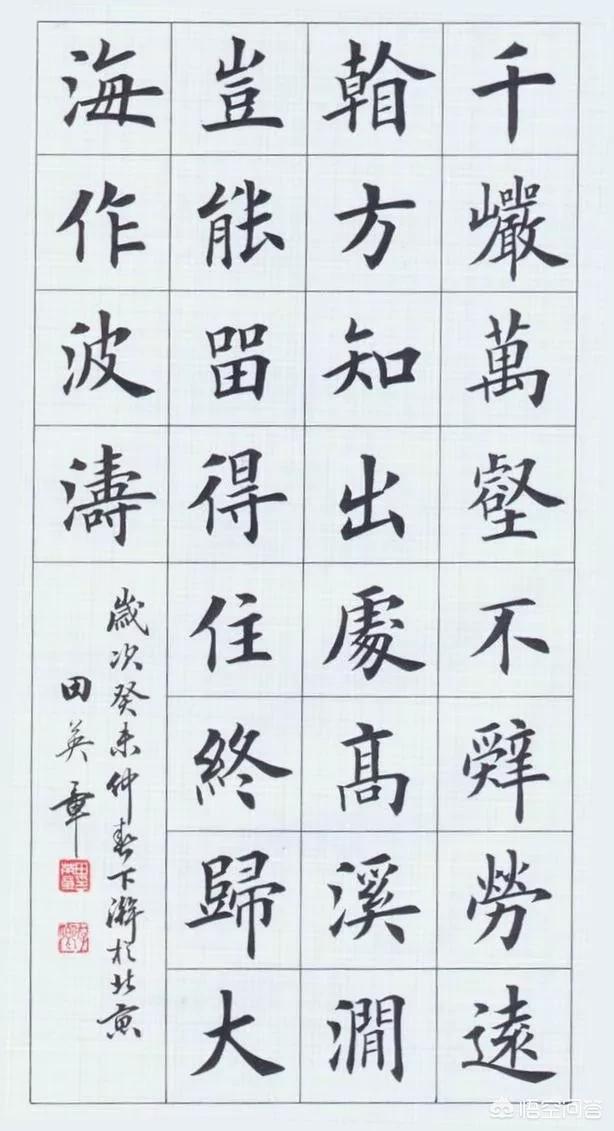 千巖萬壑不辭勞遠
看方知出處高溪澗
豈能留得住終歸大
海作波濤
歲次癸未仲春下澣於北京
田英章
悟空问答